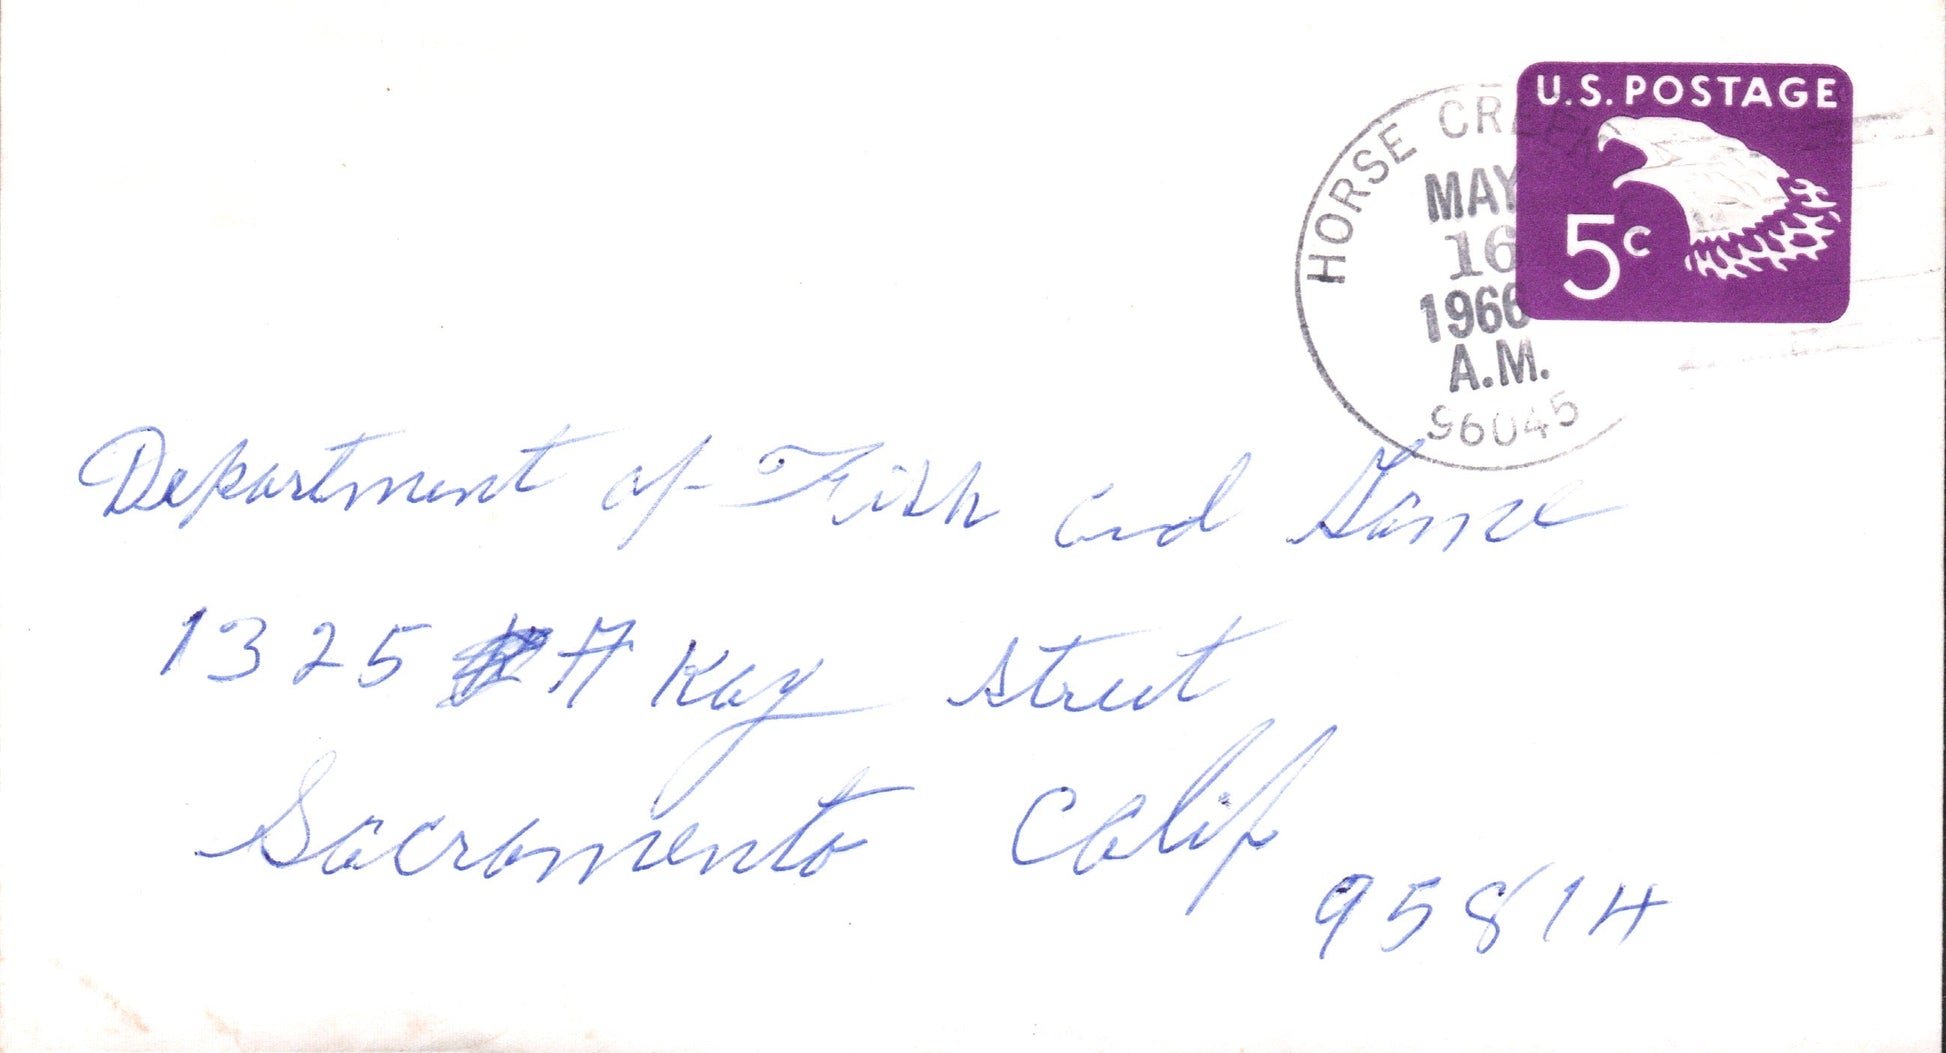 U.S. POSTAGE
5c
HORSE CREEK
MAY
16
1966
A.M.
96045
Department of Fish and Game
1325 Kay Street
Sacramento Calif
95814